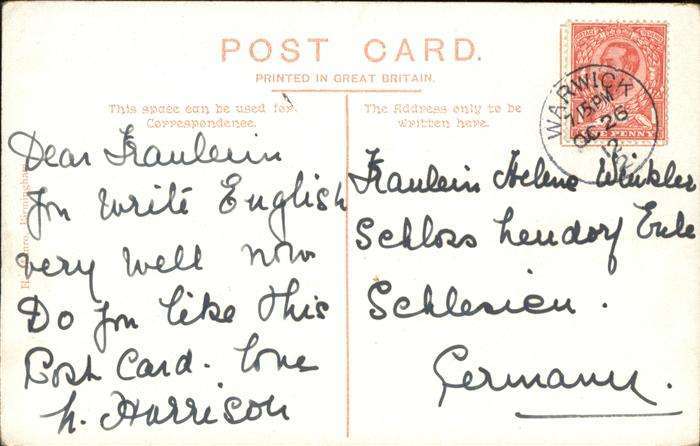 POST CARD.
PRINTED IN GREAT BRITAIN.
This space can be used for
Correspondence.
The Address only to be
written here.
Dear Fraulein
You write English
very well now
Do you like this
Post Card. love
h. Harrison
Fraulein Helene Winkler
Schloss Eule
Schlesien.
Germany.
WARWICK
15 PM
OC 26
12
ONE PENNY